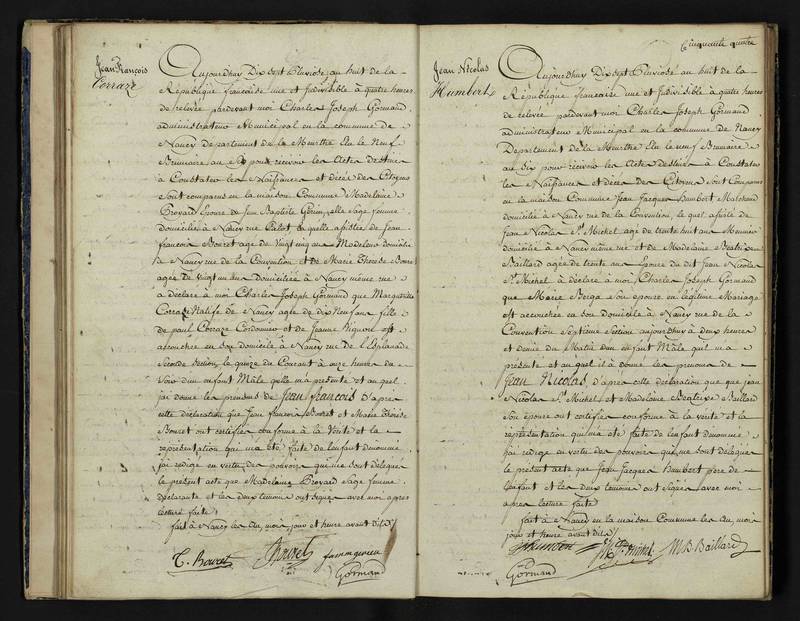 Jean François
Corraze
Aujourdhuy Dix sept Pluviose, an huit de la
République francoise une et Indivisible à quatre heures
de relevée pardevant moi Charles Joseph Gormand
administrateur Municipal en la commune de
Nancy Departement de la Meurthe Elu le Neuf
Brumaire an pour recevoir les Actes destinés
à Constater les Naissances et décès des Citoyens
sont comparus en la maison Commune Madelaine
Broyard Epouse de Jean Baptiste Sage femme
domiciliée à Nancy rue laquelle assistée de Jean
francois Bouret agé de Vingt cinq ans domicilié
à Nancy rue de la Convention et de Marie Therese Bouret
agée de Vingt un ans domiciliée à Nancy même rue
a déclaré à moi Charles Joseph Gormand que Margueritte
Corraze Native de Nancy agée de dix Neuf ans fille
de paul Corraze Cordonnier et de Jeanne est
accouchée en son domicile à Nancy rue de l'Esplanade
Seconde Section, le quinze du Courant à onze heures du
Soir d'un enfant Mâle qu'elle m'a presenté et auquel
jai donné les prenoms de Jean François d'apres
cette déclaration que Jean francois Bouret et Marie Thérèse
Bouret ont certifiée conforme à la Vérité et la
représentation qui m'a été faite de l'enfant denommé
jai redigé en vertu des pouvoirs qui me sont delegués
le present acte que Madelaine Broyard Sage femme
déclarante et les deux temoins ont signés avec moi apres
lecture faite
fait à Nancy les an, mois jour et heure avant dits
T. Bouret Bouret
Gormand
Cinquante quatre
Jean Nicolas
Humbert
Aujourdhuy Dix sept Pluviose an huit de la
République francoise une et Indivisible à quatre heures
de relevée pardevant moi Charles Joseph Gormand
administrateur Municipal en la commune de Nancy
Departement de la Meurthe Elu le neuf Brumaire
an six pour recevoir les Actes destinés à Constater
les Naissances et décès des Citoyens sont Comparus
en la maison Commune Jean Jacques Humbert Marchand
domicilié à Nancy rue de la Convention, lequel assisté de
Jean Nicolas St. Michel agé de trente huit ans
domicilié à Nancy même rue et de Madelaine Beatrix
Baillard agée de trente ans épouse du dit Jean Nicolas
St. Michel à déclaré à moi Charles Joseph Gormand
que Marie son épouse en légitime Mariage
est accouchée en son domicile à Nancy rue de la
Convention Septieme Section aujourdhuy à deux heures
et demie du Matin d'un enfant Mâle qu'il m'a
presenté et auquel il à donné les prenoms de
Jean Nicolas d'apres cette déclaration que jean
Nicolas St. Michel et Madelaine Beatrix Baillard
son épouse ont certifiée conforme à la verité et la
représentation qui m'a été faite de l'enfant denommé
jai redigé en vertu des pouvoirs qui me sont delegués
le present acte que Jean Jacques Humbert pere de
l'enfant et les deux temoins ont signés avec moi
apres lecture faite
fait à Nancy en la maison Commune les an, mois
jour et heure avant dits
St. Michel M B Baillard
Gormand